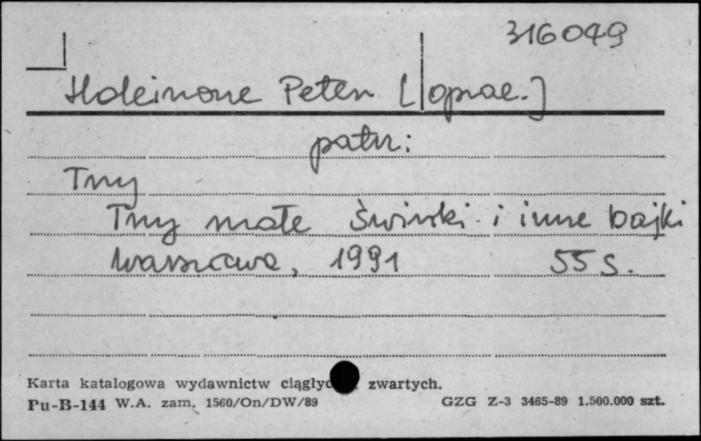 316049
Holeinone Peter [oprac.]
patrz:
Trzy
Trzy małe świnki i inne bajki
Warszawa, 1991 55 s.
Karta katalogowa wydawnictw ciągły zwartych.
Pu-B-144 W.A. zam. 1560/On/DW/89 GZG Z-3 3465-89 1.500.000 szt.